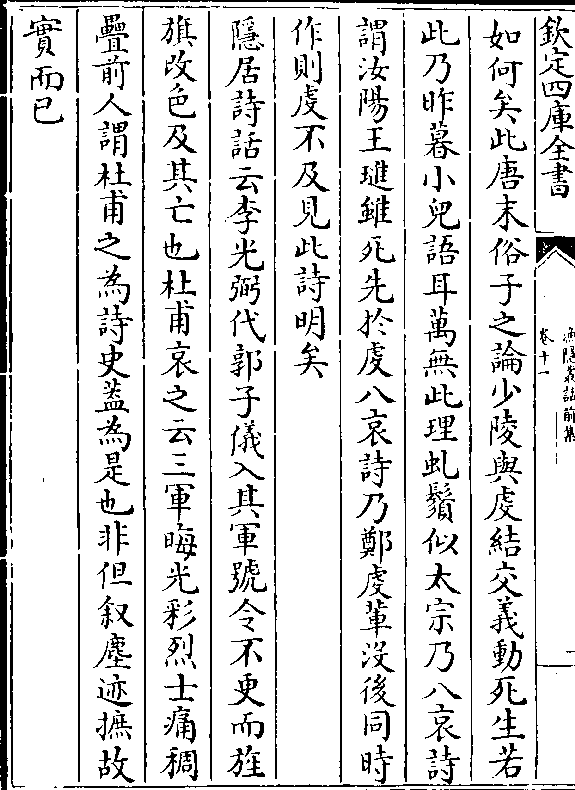 欽定四庫全書
漁隱叢話前集
卷十一
如何矣此唐末俗子之論少陵與虔結交義動死生若
此乃昨暮小兒語耳萬無此理虬鬚似太宗乃八哀詩
謂汝陽王璡雖死先於虔八哀詩乃鄭虔軰没後同時
作則虔不及見此詩明矣
隱居詩話云李光弼代郭子儀入其軍號令不更而旌
旗改色及其亡也杜甫哀之云三軍晦光彩烈士痛稠
疊前人謂杜甫之為詩史葢為是也非但叙塵迹摭故
實而已